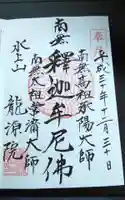 奉拝
平成三十年十二月三十日
南無高祖承陽大師
南無釋迦牟尼佛
南無太祖常済大師
水上山
龍源院